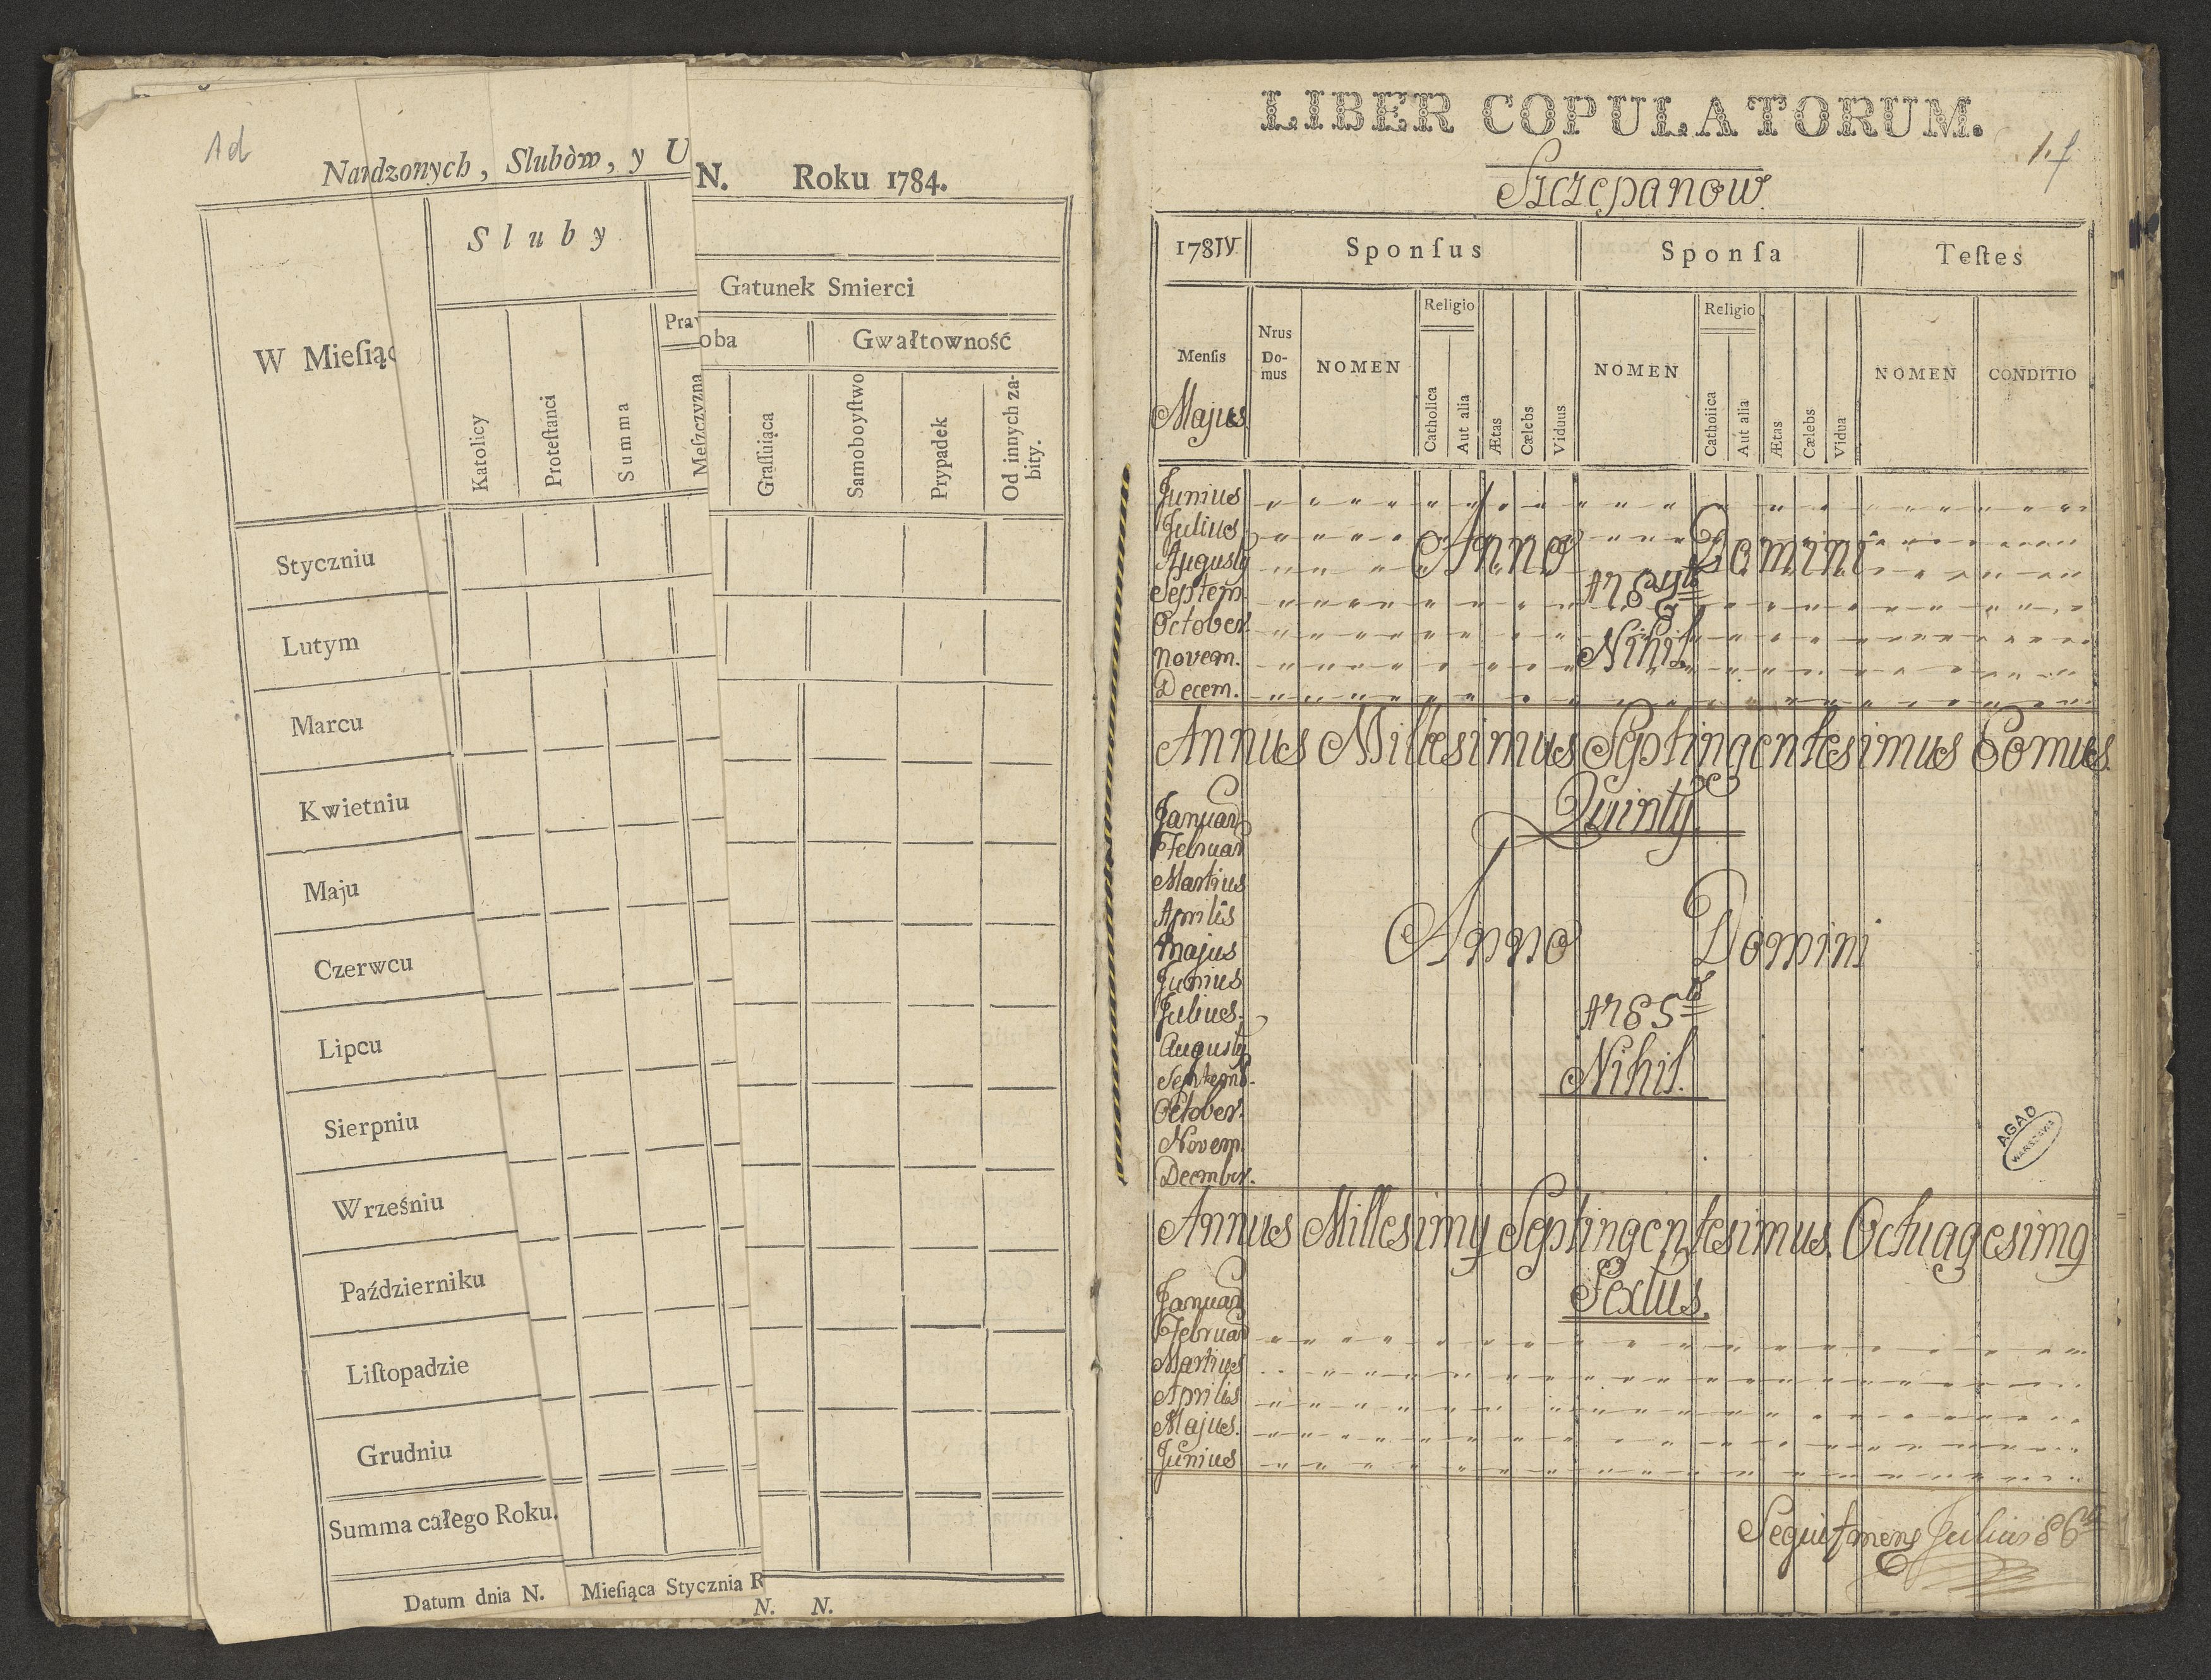 Ad
Nardzonych, Slubòw, y U
N. Roku 1784.
W Mieſiąc
Sluby
Gatunek Smierci
oba
Gwałtowność
Katolicy
Proteſtanci
Summa
Meſzczyzna
Graſſuiąca
Samoboyſtwo
Prypadek
Od innych zabity.
Styczniu
Lutym
Marcu
Kwietniu
Maju
Czerwcu
Lipcu
Sierpniu
Wrześniu
Październiku
Liſtopadzie
Grudniu
Summa całego Roku.
Datum dnia N. Mieſiąca Stycznia R
N. N.
LIBER COPULATORUM.
Szczepanow.
178IV Sponſus Sponſa Teſtes
Menſis
Majus
Nrus Do-mus
NOMEN
Religio
Catholica
Aut alia
Ætas
Cælebs
Viduus
NOMEN
Religio
Catholica
Aut alia
Ætas
Cælebs
Vidua
NOMEN
CONDITIO
Junius
Julius
Augusty
Septem.
October.
Novem.
Decem.
Anno Domini
Nihil
Annus Millesimus Septingentesimus
Quinty
Januar
Februar
Martius
Aprilis
Majus
Junius
Julius.
Augusty
Septemb.
October.
Novem.
Decembr.
Anno Domini
Nihil.
AGAD
WARSZAWA
Annus Millesimy Septingentesimus Octuagesimg
Sextus.
Januar
Februar
Martius
Aprilis
Majus.
Junius
Sequit mens Julius 86